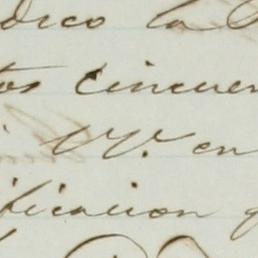 dico la
tos cincuen
VV. en
ificacion q